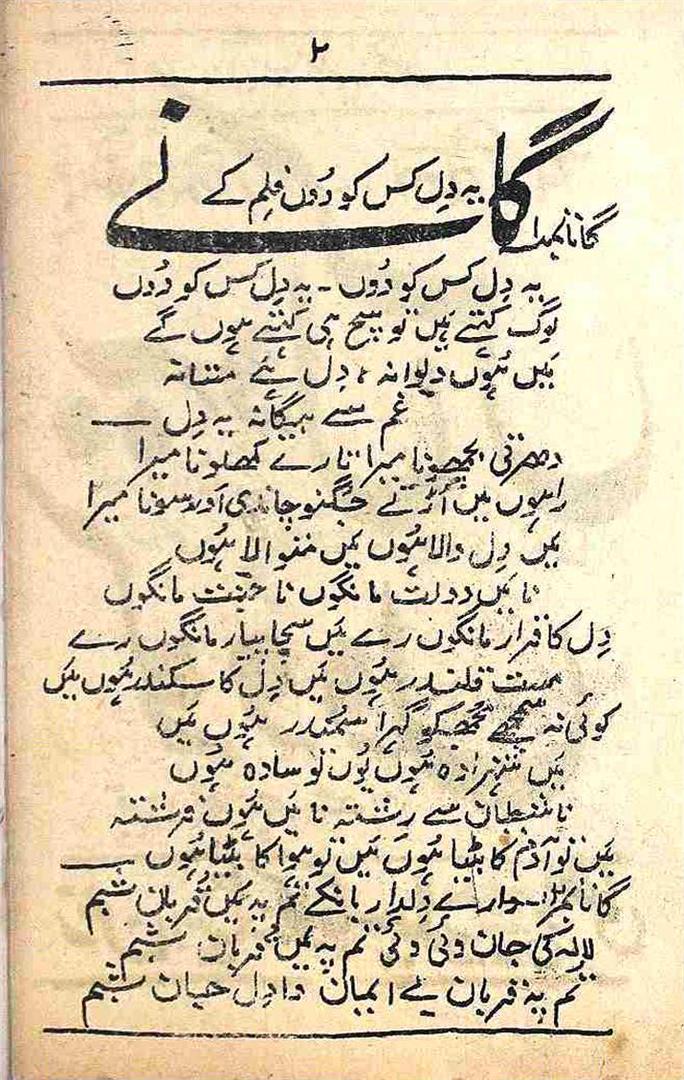 ۲
گانے
یہ دِل کس کو دُوں فلم کے
گانا نمبر۱
یہ دِل کس کو دُوں ـ یہ دِل کس کو دُوں
لوگ کہتے ہیں تو سچ ہی کہتے ہوں گے
میں ہُوں دیوانہ، دِل ہے مستانہ
غم سے بیگانہ یہ دِل ــــ
دھرتی بچھونا میرا تارے کھلونا میرا
راہوں میں اُڑتے جگنو چاندی اور سونا میرا
میں دِل والا ہُوں میں متوالا ہُوں
نا میں دولت مانگوں نا جنّت مانگوں
دِل کا قرار مانگوں رے میں سچا پیار مانگوں رے
مست قلندر ہُوں میں دِل کا سکندر ہُوں میں
کوئی نہ سمجھے مجھ کو گہرا سمُندر ہُوں میں
میں شہزادہ ہُوں یُوں تو سادہ ہُوں
نا شیطان سے رِشتہ نا میں ہُوں فرشتہ
میں تو آدم کا بیٹیا ہُوں میں تو ہوا کا بیٹیا ہُوں ــــ
گانا نمبر۲ :ـ ارے دِلدار بانکے تم پہ میں قُربان شبنم
لالہ کی جان وئی وئی تم پہ میں قُربان شبنم
تم پہ قربان ہے ایمان و دِل جان شبنم